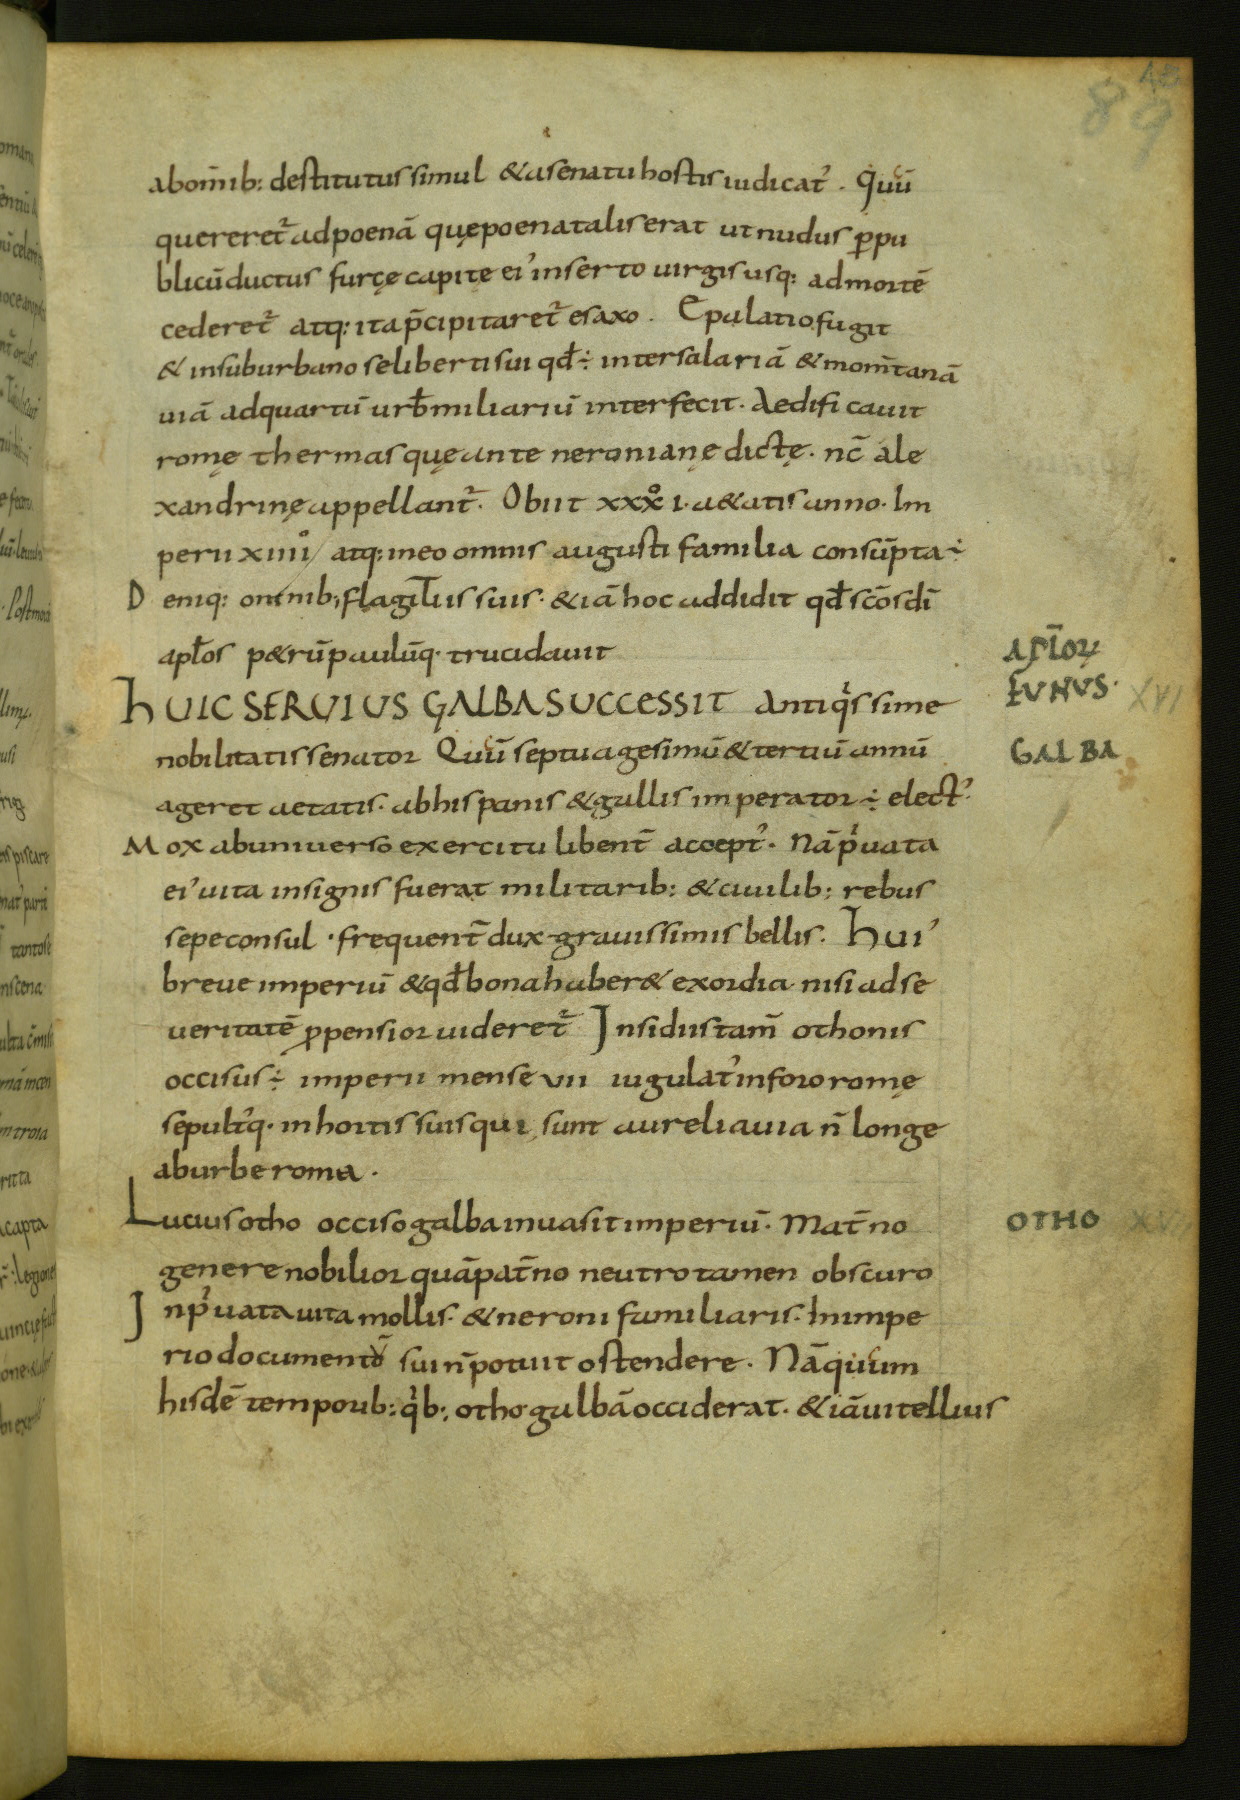 89
abom̅ib: destitutus simul & a senatu hostis iudicat᷑. Quu̅
quereret᷑ ad poena̅ quę poena talis erat ut nudus ꝑ pu
blicu̅ ductus furcę capite ei' inserto uirgis usq: ad morte̅
cederet᷑ atq: ita p̅cipitaret᷑ e saxo. E palatio fugit
& in suburbano se liberti sui qđ ÷ inter salaria̅ & mom̅tana̅
uia̅ ad quartu̅ urb̅ miliariu̅ interfecit. Aedificauit
romę thermas quę ante neronianę dictę. nc̅ ale
xandrinę appellant᷑. Obiit xxx̊ i. a&atis anno. Im
perii xiiii̊ atq: in eo omnis augusti familia consu̅pta ÷
Deniq: omnib; flagitiis suis. & ia̅ hoc addidit qđ sc̅os di̅
apl̅os p&ru̅ paulu̅q. trucidauit
APL̅Oꝝ
FUNUS. XVI
HUIC SERUIUS GALBA SUCCESSIT Antiq᷑ssime
nobilitatis senator Quu̅ septuagesimu̅ & tertiu̅ annu̅
GALBA
ageret aetatis. ab hispanis & gallis imperator ÷ elect'.
Mox ab uniuerso exercitu libent̅ accept'. Na̅ p᷑uata
ei' uita insignis fuerat militarib: & ciuilib: rebus
sepe consul. frequent̅ dux grauissimis bellis. Hui'
breue imperiu̅ & qđ bona haber& exordia nisi ad se
ueritate̅ ꝓpensior uideret᷑ Insidiis tam̅ othonis
occisus ÷ imperii mense vii iugulat' in foro romę
sepult'q. in hortis suis qui sunt aurelia uia n̅ longe
ab urbe roma.
Lucius otho occiso galba inuasit imperiu̅. Mat̅no
OTHO XV
genere nobilior qua̅ pat̅no neutro tamen obscuro
In p᷑uata uita mollis. & neroni familiaris. In impe
rio documento sui n̅ potuit ostendere. Na̅ quum
hisde̅ temporib: q᷑b; otho galba̅ occiderat. & ia̅ uitellius